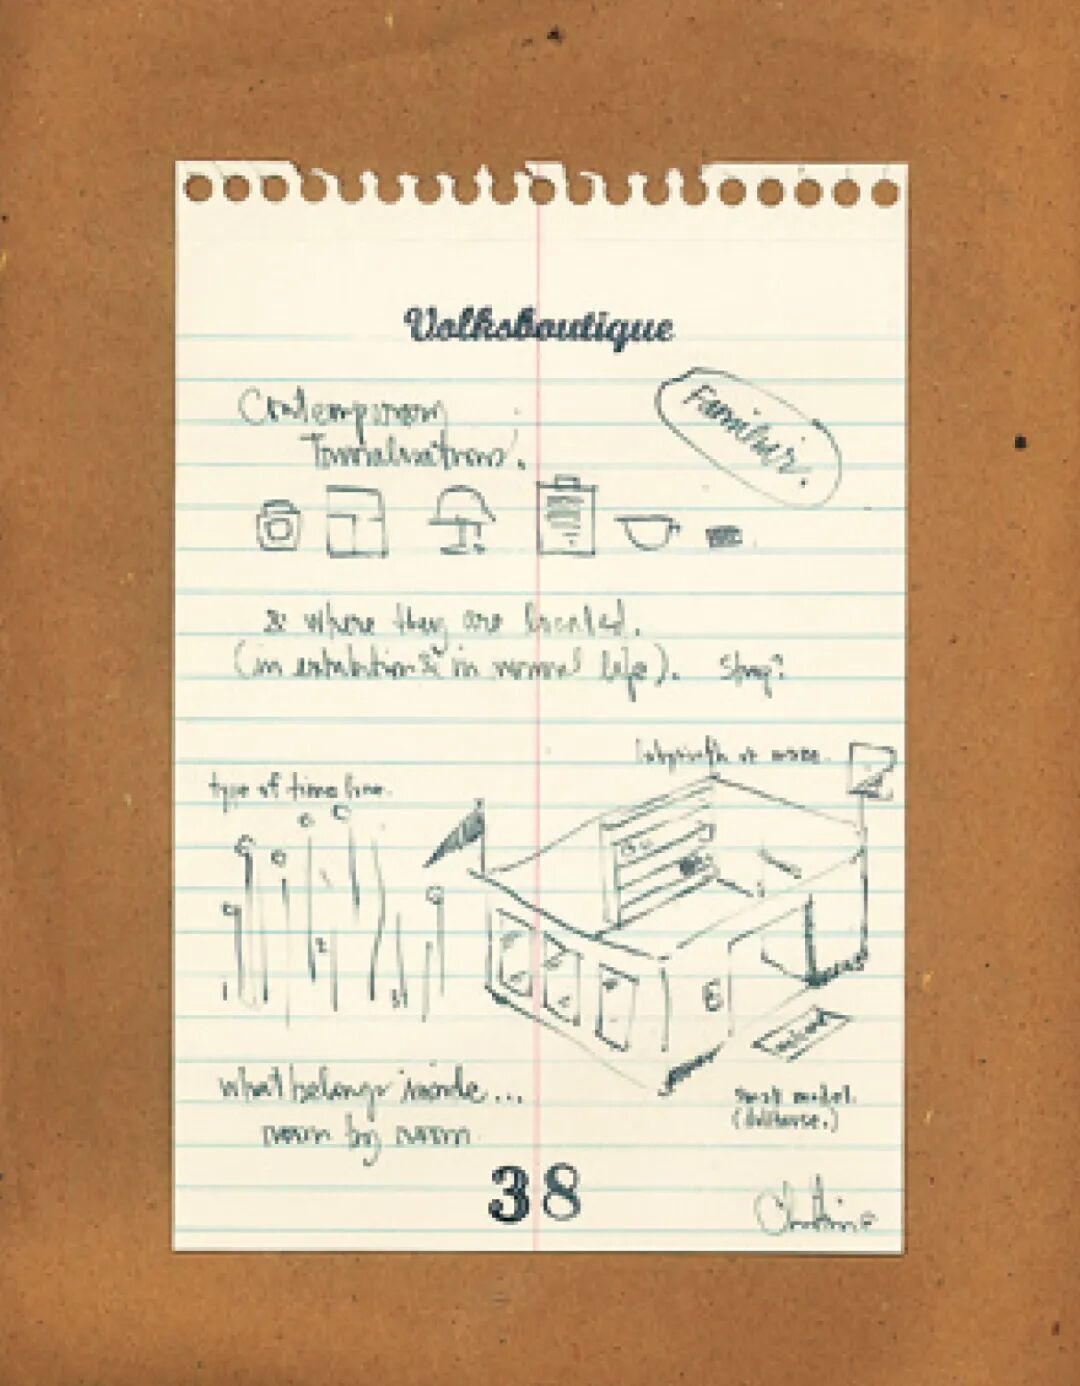 Volksboutique
Contemporary
Familiar.
& where they are located.
(in exhibitions & in normal life). Stay?
labyrinth or maze.
type of time line.
2
31
3
what belongs inside...
room by room
small model.
(dollhouse.)
38
Christine